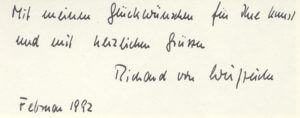 Mit meinen Glückwünschen für Ihre Kunst
und mit herzlichen Grüssen
Richard von
Februar 1992